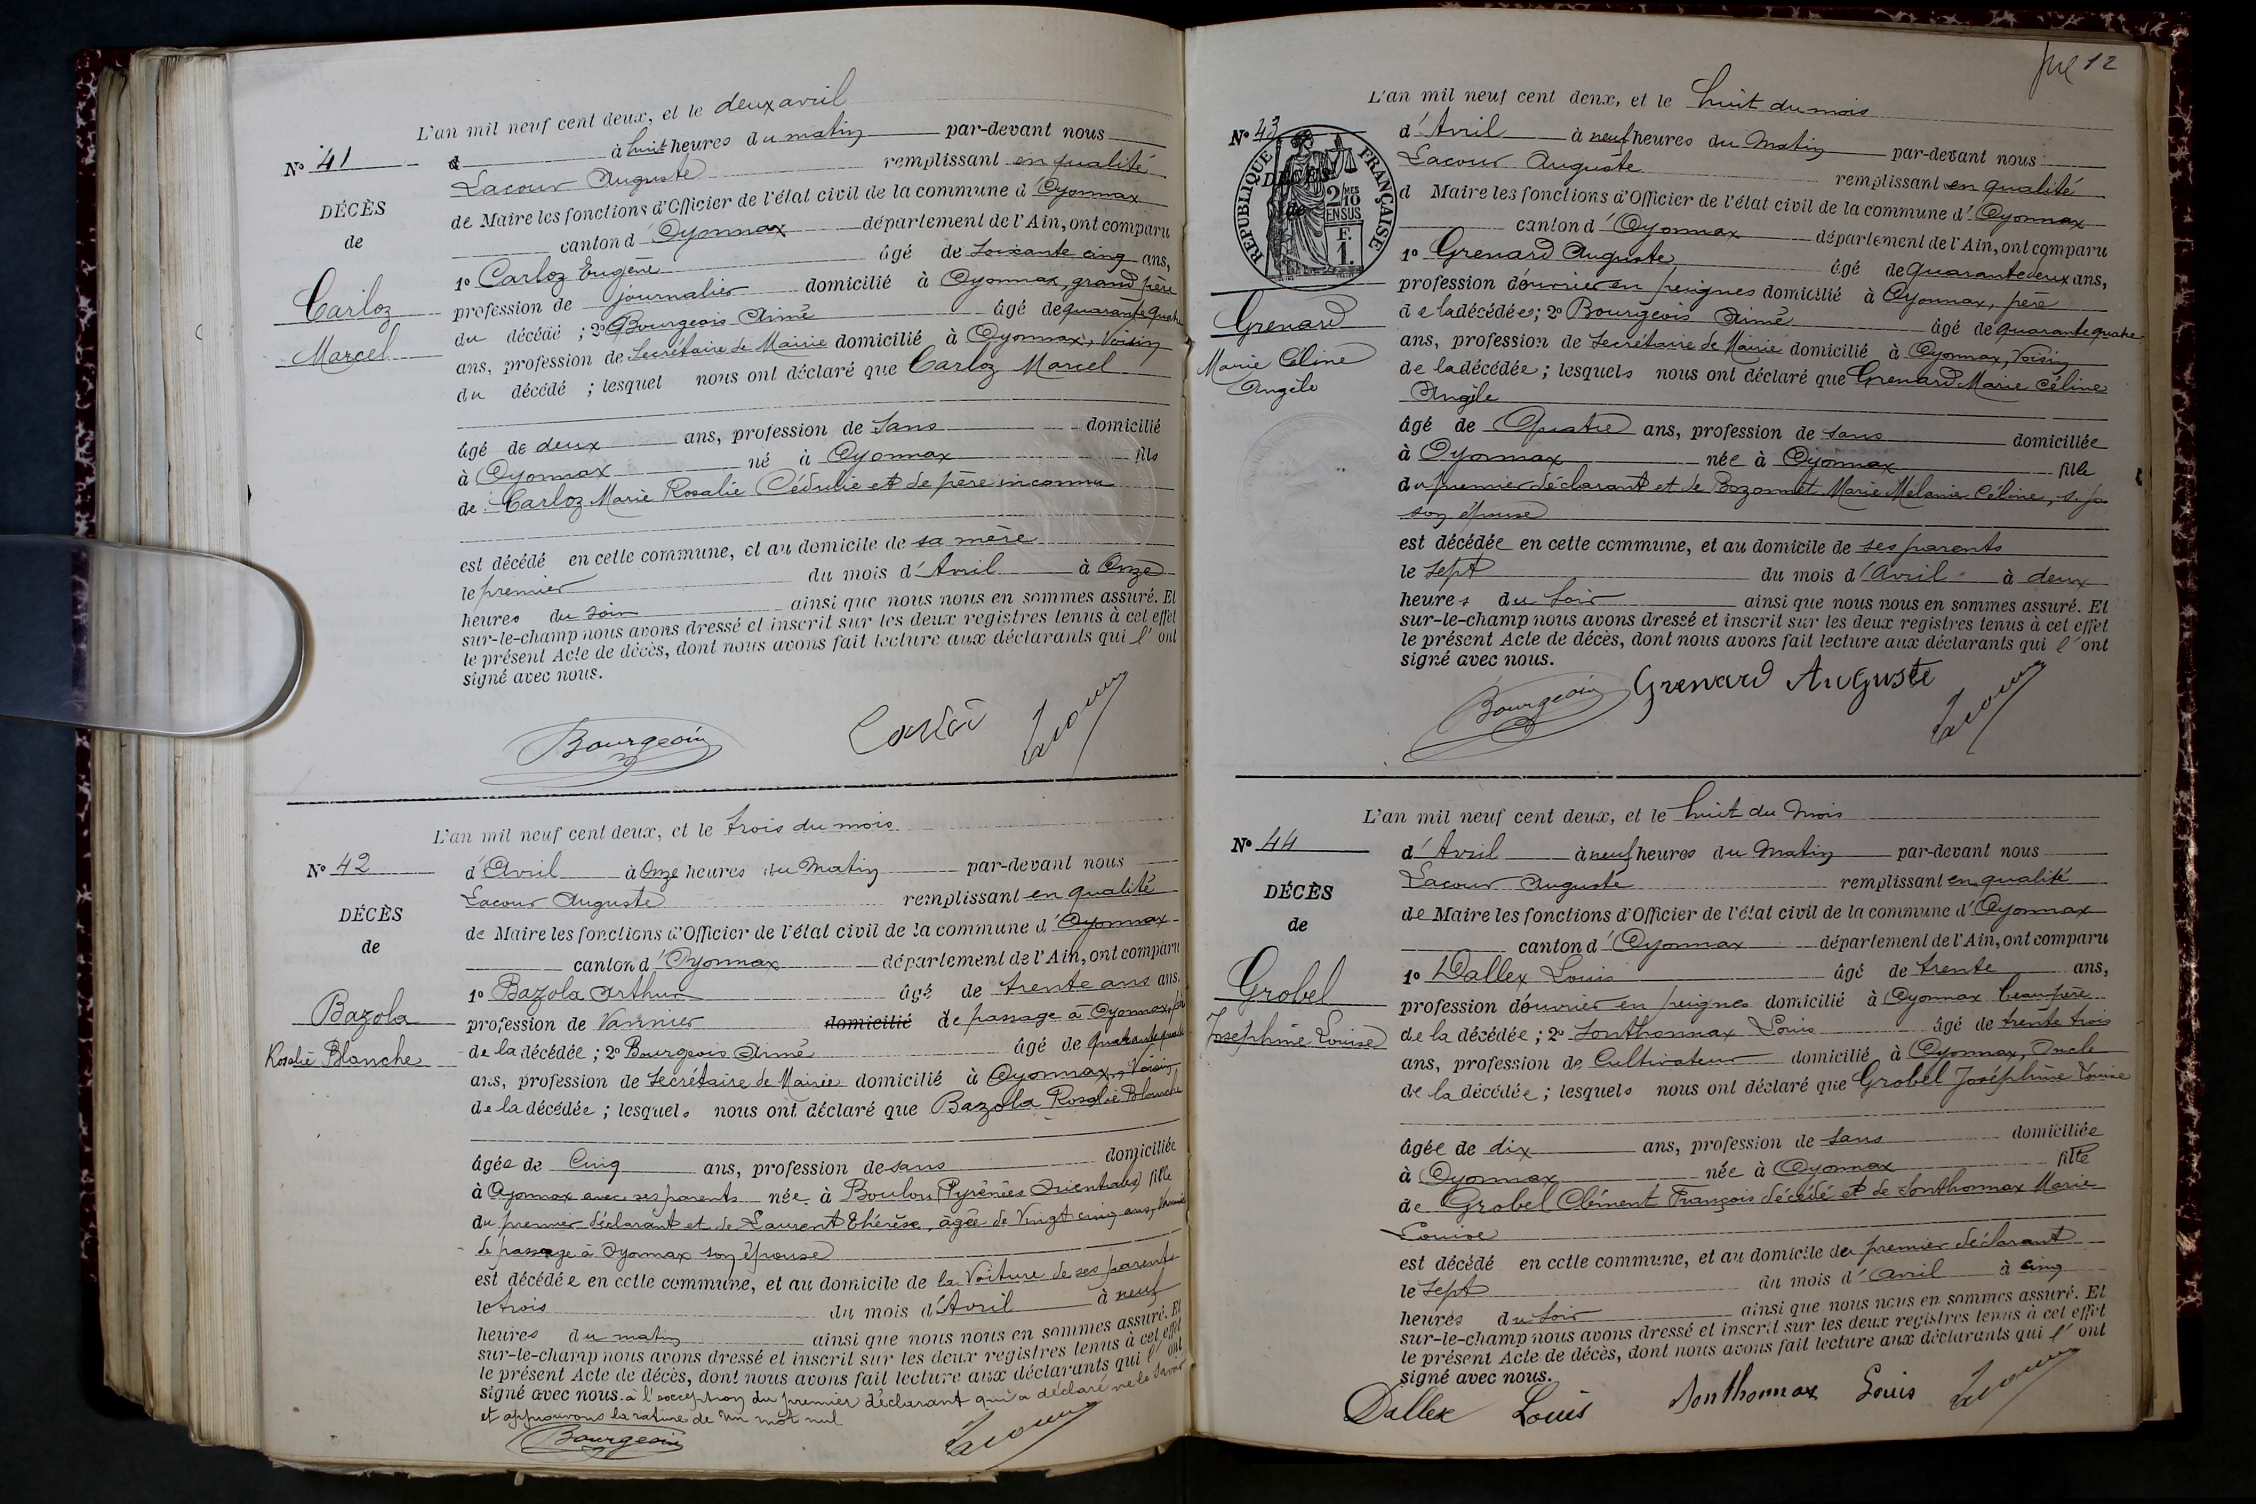 L'an mil neuf cent deux, et le deux avril
N° 41
d à huit heures du matin par-devant nous
Lacour Auguste remplissant en qualité
DÉCÈS
de Maire les fonctions d'Officier de l'état civil de la commune d'Oyonnax
de
canton d'Oyonnax département de l'Ain, ont comparu
1° Carloz Eugène âgé de soixante cinq ans,
Carloz
profession de journalier domicilié à Oyonnax, grand père
du décédé ; 2° Bourgeois Aimé âgé de quarante quatre
Marcel
ans, profession de Secrétaire de Mairie domicilié à Oyonnax, Voisin
du décédé ; lesquel nous ont déclaré que Carloz Marcel
âgé de deux ans, profession de sans domicilié
à Oyonnax né à Oyonnax fils
de Carloz Marie Rosalie Cédulie et de père inconnu
est décédé en cette commune, et au domicile de sa mère
le premier du mois d'Avril à Onze
heures du soir ainsi que nous nous en sommes assuré. Et
sur-le-champ nous avons dressé et inscrit sur les deux registres tenus à cet effet
le présent Acte de décès, dont nous avons fait lecture aux déclarants qui l'ont
signé avec nous.
Bourgeois Lacour
L'an mil neuf cent deux, et le trois du mois
N° 42
d'Avril à Onze heures du Matin par-devant nous
Lacour Auguste remplissant en qualité
DÉCÈS
de Maire les fonctions d'Officier de l'état civil de la commune d'Oyonnax
de
canton d'Oyonnax département de l'Ain, ont comparu
1° Bazola Arthur âgé de trente ans ans,
Bazola
profession de Vannier domicilié de passage à Oyonnax, père
Rosalie Blanche
de la décédée ; 2° Bourgeois Aimé âgé de quarante quatre
ans, profession de Secrétaire de Mairie domicilié à Oyonnax, Voisin
de la décédée ; lesquels nous ont déclaré que Bazola Rosalie Blanche
âgée de Cinq ans, profession de sans domiciliée
à Oyonnax avec ses parents née à Boulou (Pyrénées Orientales) fille
du premier déclarant et de Laurent Thérèse, âgée de Vingt cinq ans,
de passage à Oyonnax son épouse
est décédée en cette commune, et au domicile de la Voiture de ses parents
le trois du mois d'Avril à neuf
heures du matin ainsi que nous nous en sommes assuré. Et
sur-le-champ nous avons dressé et inscrit sur les deux registres tenus à cet effet
le présent Acte de décès, dont nous avons fait lecture aux déclarants qui l'ont
signé avec nous. à l'exception du premier déclarant qui a déclaré ne le savoir
et approuvons la rature de un mot nul
Bourgeois Lacour
12
L'an mil neuf cent deux, et le huit du mois
N° 43
d'Avril à neuf heures du Matin par-devant nous
Lacour Auguste remplissant en qualité
RÉPUBLIQUE FRANÇAISE
DÉCÈS
de
2 MES
10
EN SUS
F.
1.
d Maire les fonctions d'Officier de l'état civil de la commune d'Oyonnax
canton d'Oyonnax département de l'Ain, ont comparu
1° Grenard Auguste âgé de quarante deux ans,
profession d'ouvrier en peignes domicilié à Oyonnax, père
Grenard
de la décédée ; 2° Bourgeois Aimé âgé de quarante quatre
Marie Céline
ans, profession de Secrétaire de Mairie domicilié à Oyonnax, Voisin
Angèle
de la décédée ; lesquels nous ont déclaré que Grenard Marie Céline
Angèle
âgé de Quatre ans, profession de sans domiciliée
à Oyonnax née à Oyonnax fille
du premier déclarant et de Bozonnet Marie Mélanie Céline,
son épouse
est décédée en cette commune, et au domicile de ses parents
le sept du mois d'Avril à deux
heures du soir ainsi que nous nous en sommes assuré. Et
sur-le-champ nous avons dressé et inscrit sur les deux registres tenus à cet effet
le présent Acte de décès, dont nous avons fait lecture aux déclarants qui l'ont
signé avec nous.
Bourgeois Grenard Auguste Lacour
L'an mil neuf cent deux, et le huit du Mois
N° 44
d'Avril à neuf heures du Matin par-devant nous
Lacour Auguste remplissant en qualité
DÉCÈS
de Maire les fonctions d'Officier de l'état civil de la commune d'Oyonnax
de
canton d'Oyonnax département de l'Ain, ont comparu
1° Dallex Louis âgé de trente ans,
Grobel
profession d'ouvrier en peignes domicilié à Oyonnax beau père
Joséphine Louise
de la décédée ; 2° Sonthonnax Louis âgé de trente trois
ans, profession de Cultivateur domicilié à Oyonnax, Oncle
de la décédée ; lesquels nous ont déclaré que Grobel Joséphine Louise
âgée de dix ans, profession de sans domiciliée
à Oyonnax née à Oyonnax fille
de Grobel Clément François décédé et de Sonthonnax Marie
Louise
est décédé en cette commune, et au domicile du premier déclarant
le sept du mois d'avril à cinq
heures du soir ainsi que nous nous en sommes assuré. Et
sur-le-champ nous avons dressé et inscrit sur les deux registres tenus à cet effet
le présent Acte de décès, dont nous avons fait lecture aux déclarants qui l'ont
signé avec nous.
Dallex Louis Sonthonnax Louis Lacour